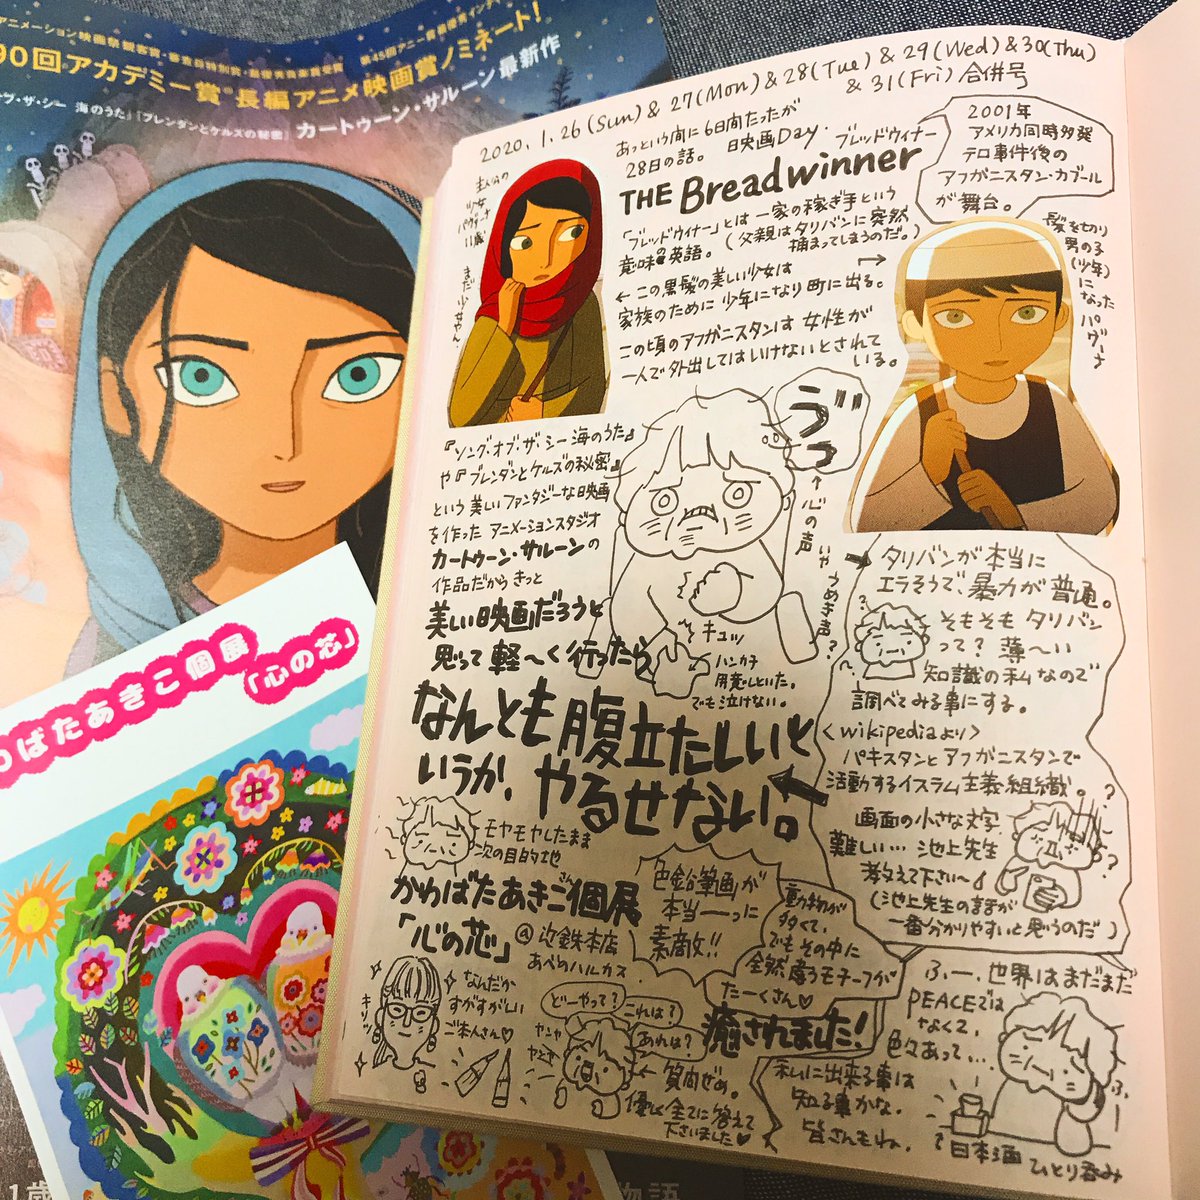 アニメーション映画祭観客賞・審査員特別賞・最優秀音楽賞受賞
90回アカデミー賞®長編アニメ映画賞ノミネート!
『ソング・オブ・ザ・シー 海のうた』『ブレンダンとケルズの秘密』 カートゥーン・サルーン最新作
ばたあきこ個展
「心の芯」
物語
2020.1.26(Sun)&27(Mon)&28(Tue)&29(Wed)&30(Thu)
&31(Fri)合併号
あっという間に6日間たったが
28日の話。 映画Day.
ブレッドウィナー
THE Breadwinner
2001年
アメリカ同時多発
テロ事件後の
アフガニスタン・カブール
が舞台。
11歳
まだ少女やん。
「ブレッドウィナー」とは一家の稼ぎ手という
意味の英語。(父親はタリバンに突然
捕まってしまうのだ。)
←この黒髪の美しい少女は
家族のために少年になり町に出る。
この頃のアフガニスタンは女性が
一人で外出してはいけないとされて
いる。
髪をきり
男の子
(少年)
に
なった
パヴァーナ
『ソング・オブ・ザ・シー 海のうた』
や『ブレンダンとケルズの秘密』
という美しいファンタジーな映画
を作ったアニメーションスタジオ
カートゥーン・サルーンの
作品だからきっと
美しい映画だろうと
思って軽〜く行ったら
なんとも腹立たしいと
いうか、やるせない。
ううっ
↑心の声
いや うめき声?
キュッ
ハンカチ
用意しといた。
でも泣けない。
タリバンが本当に
エラそうで、暴力が普通。
そもそもタリバン
って? 薄〜い
知識の私なので
調べてみる事にする。
<wikipediaより>
パキスタンとアフガニスタンで
活動するイスラム主義組織。?
画面の小さな文字
難しい… 池上先生
教えて下さい〜
(池上先生の話が
一番分かりやすいと思うのだ)
モヤモヤしたまま
次の目的地
かわばたあきこ個展
「心の芯」
@近鉄本店
あべのハルカス
色鉛筆画が
本当ーっに
素敵!!
動物が
多くて、
でもその中に
全然違うモチーフが
たーくさん♡
癒されました!
キリッ
なんだか
すがすがしい
ご本人さん♡
どーやって?
これは?
あれは?
ヤンヤ
ヤンヤ
←質問ぜめ。
優しく全てに答えて
下さいました♡
ふー、世界はまだまだ
PEACEでは
なくて、
色々あって…
私に出来る事は
知る事かな。
皆さんもね。
日本酒
ひとり呑み